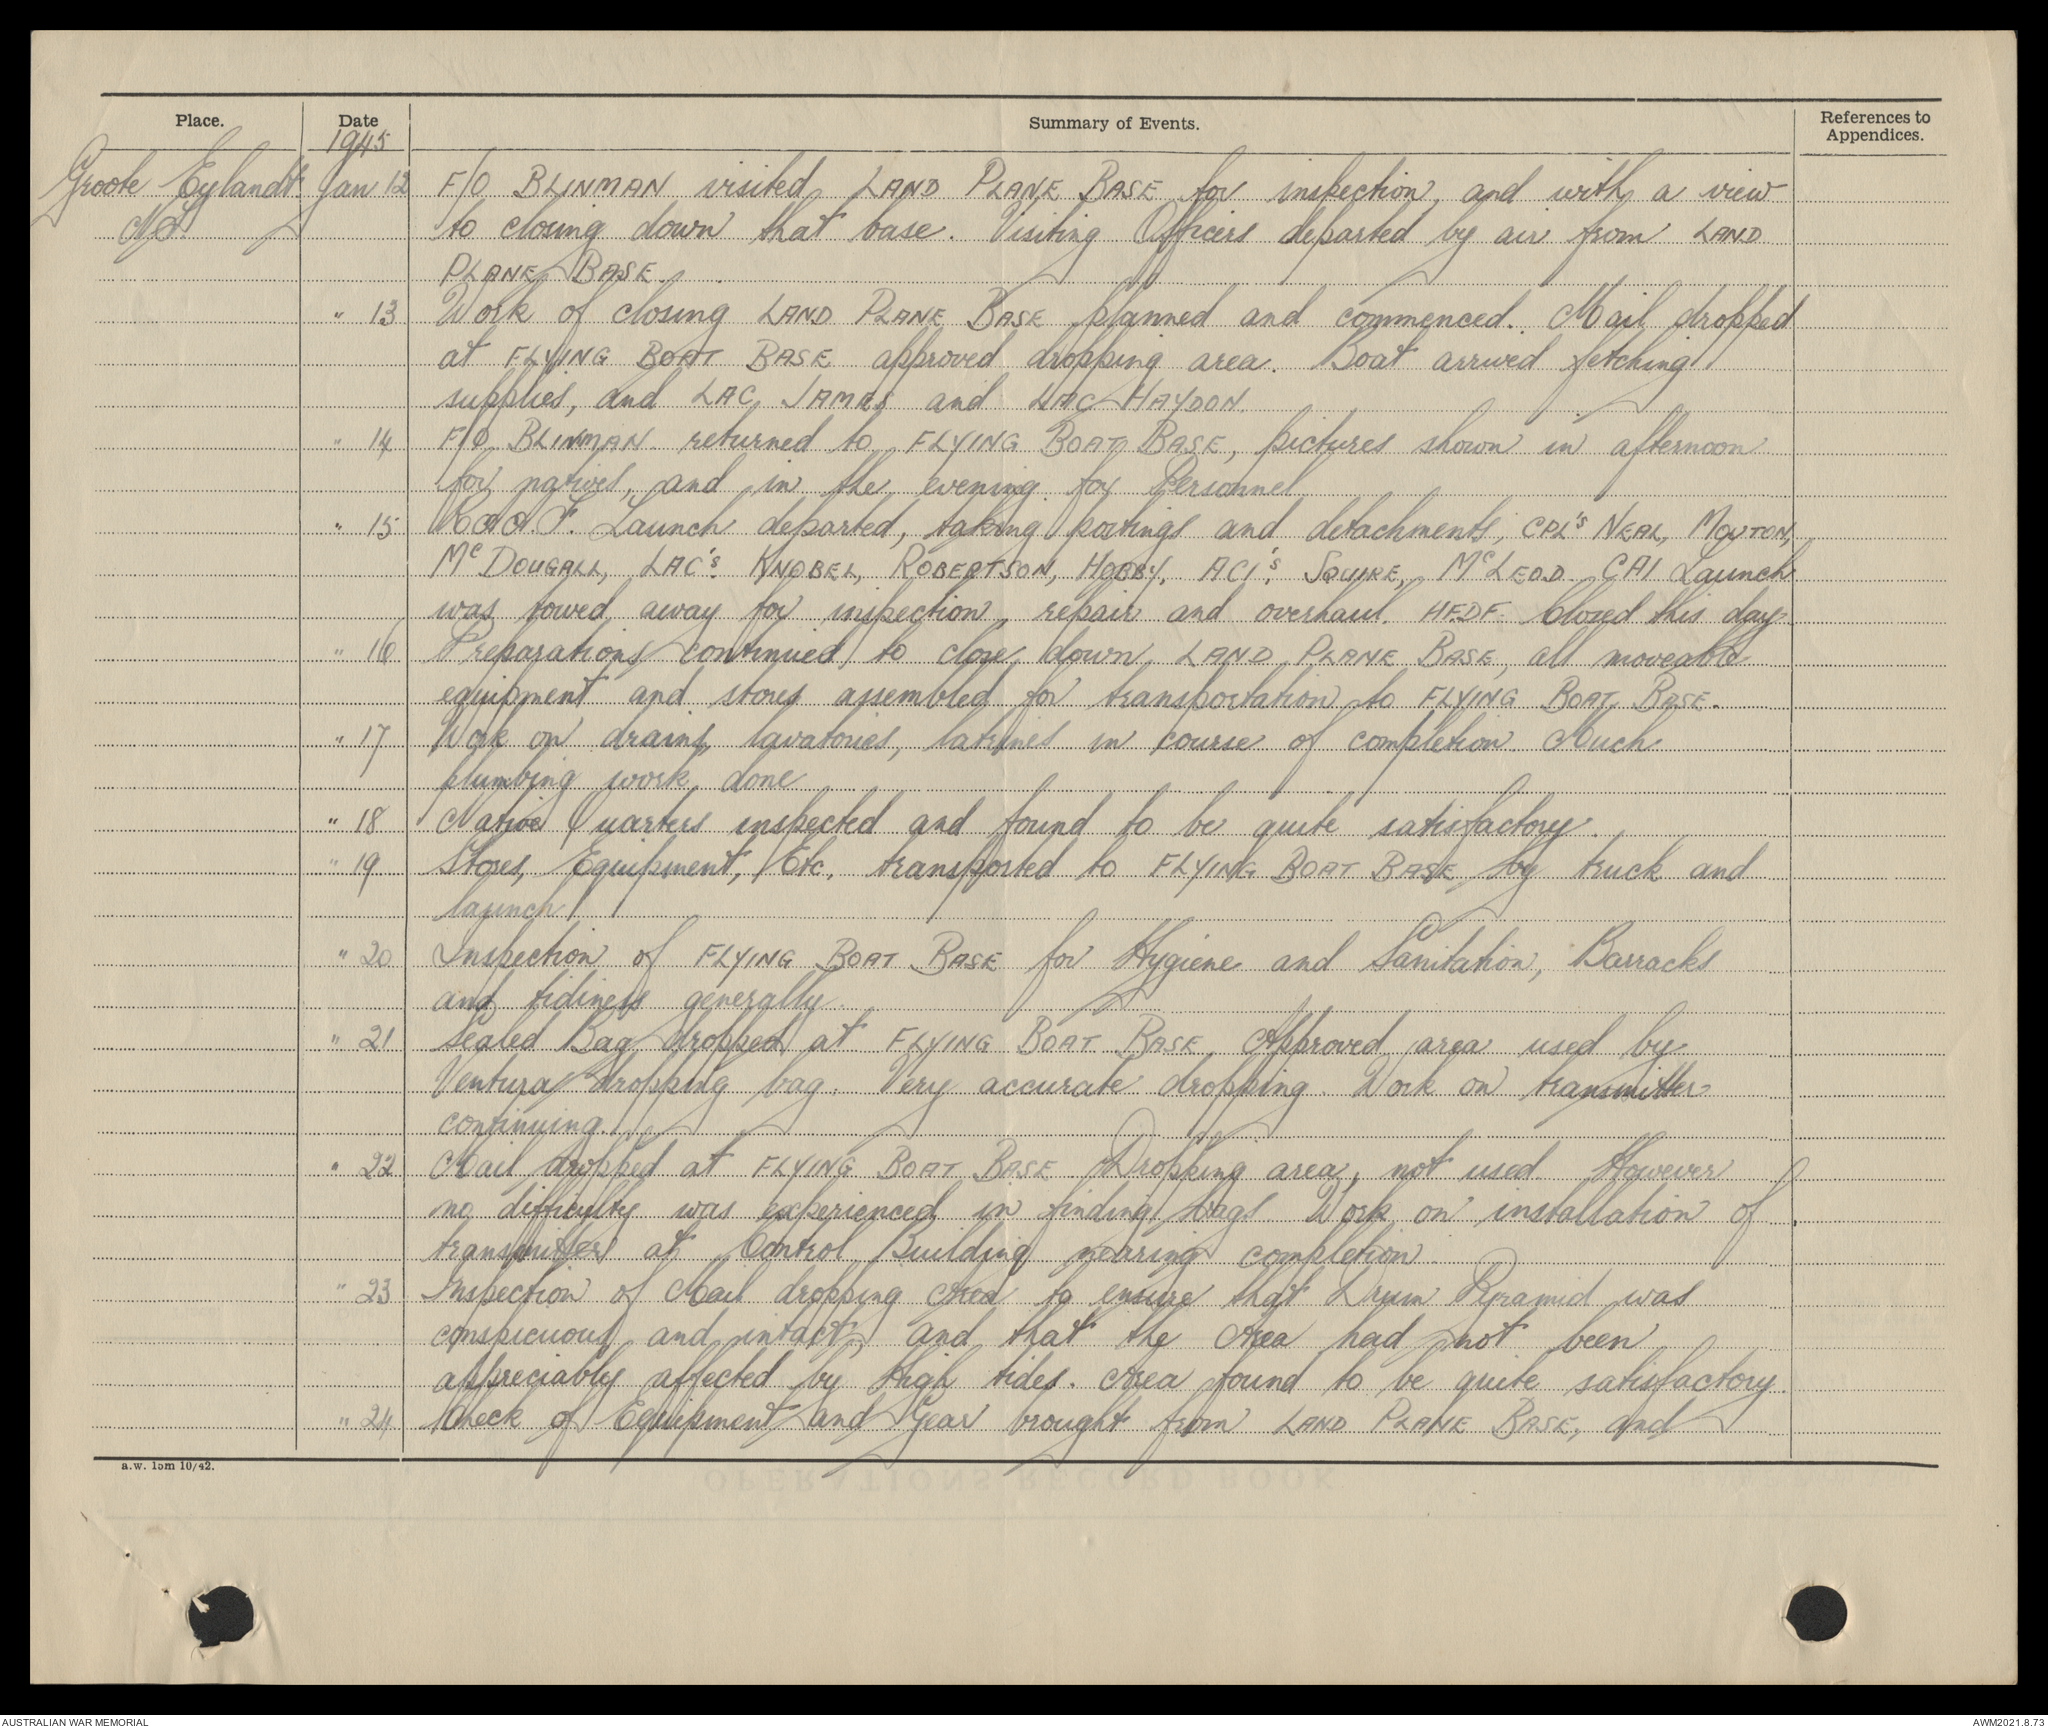 Place. Date Summary of Events. References to Appendices.
1945
Groote Eylandt. Jan 12 F/O BLINMAN visited LAND PLANE BASE for inspection, and with a view
N.T. to closing down that base. Visiting Officers departed by air from LAND
PLANE BASE.
" 13 Work of closing LAND PLANE BASE planned and commenced. Mail dropped
at FLYING BOAT BASE approved dropping area. Boat arrived fetching
supplies, and LAC JAMES and LAC HAYDON.
" 14 F/O BLINMAN returned to FLYING BOAT BASE, pictures shown in afternoon
for natives, and in the evening for Personnel.
" 15 R.A.A.F. Launch departed, taking postings and detachments, CPL's NEAL, MOUTON,
McDOUGALL, LAC's. KNOBEL, ROBERTSON, HOBBY, AC1's. SQUIRE, McLEOD. CA1 Launch
was towed away for inspection, repair and overhaul. HFDF. closed this day.
" 16 Preparations continued to close down LAND PLANE BASE, all moveable
equipment and stores assembled for transportation to FLYING BOAT BASE.
" 17 Work on drains, lavatories, latrines in course of completion. Much
plumbing work done
" 18 Native Quarters inspected and found to be quite satisfactory.
" 19 Stores, Equipment, Etc. transported to FLYING BOAT BASE by truck and
launch
" 20 Inspection of FLYING BOAT BASE for Hygiene and Sanitation, Barracks
and tidiness generally.
" 21 Sealed Bag dropped at FLYING BOAT BASE. Approved area used by
Ventura dropping bag. Very accurate dropping. Work on transmitter
continuing.
" 22 Mail dropped at FLYING BOAT BASE. Dropping area, not used. However
no difficulty was experienced in finding bags. Work on installation of
transmitter at Control Building nearing completion.
" 23 Inspection of Mail dropping Area to ensure that Drum Pyramid was
conspicuous and intact, and that the Area had not been
appreciably affected by High tides. Area found to be quite satisfactory.
" 24 Check of Equipment and Gear brought from LAND PLANE BASE, and
a.w. 15m 10/42.
OPERATIONS RECORD BOOK
AUSTRALIAN WAR MEMORIAL AWM2021.8.73